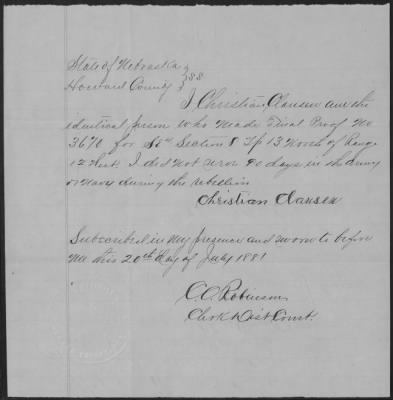 State of Nebraska }
Howard County } SS
I Christian Clausen am the
identical person who made Final Proof No
3670 for Section 8 Tp 13 North of Range
12 West I did not 90 days in the army
or Navy during the rebellion
Christian Clausen
Subscribed in my presence and sworn to before
me this 20th day of July 1881
C. C. Robinson
Clerk Dist Court.